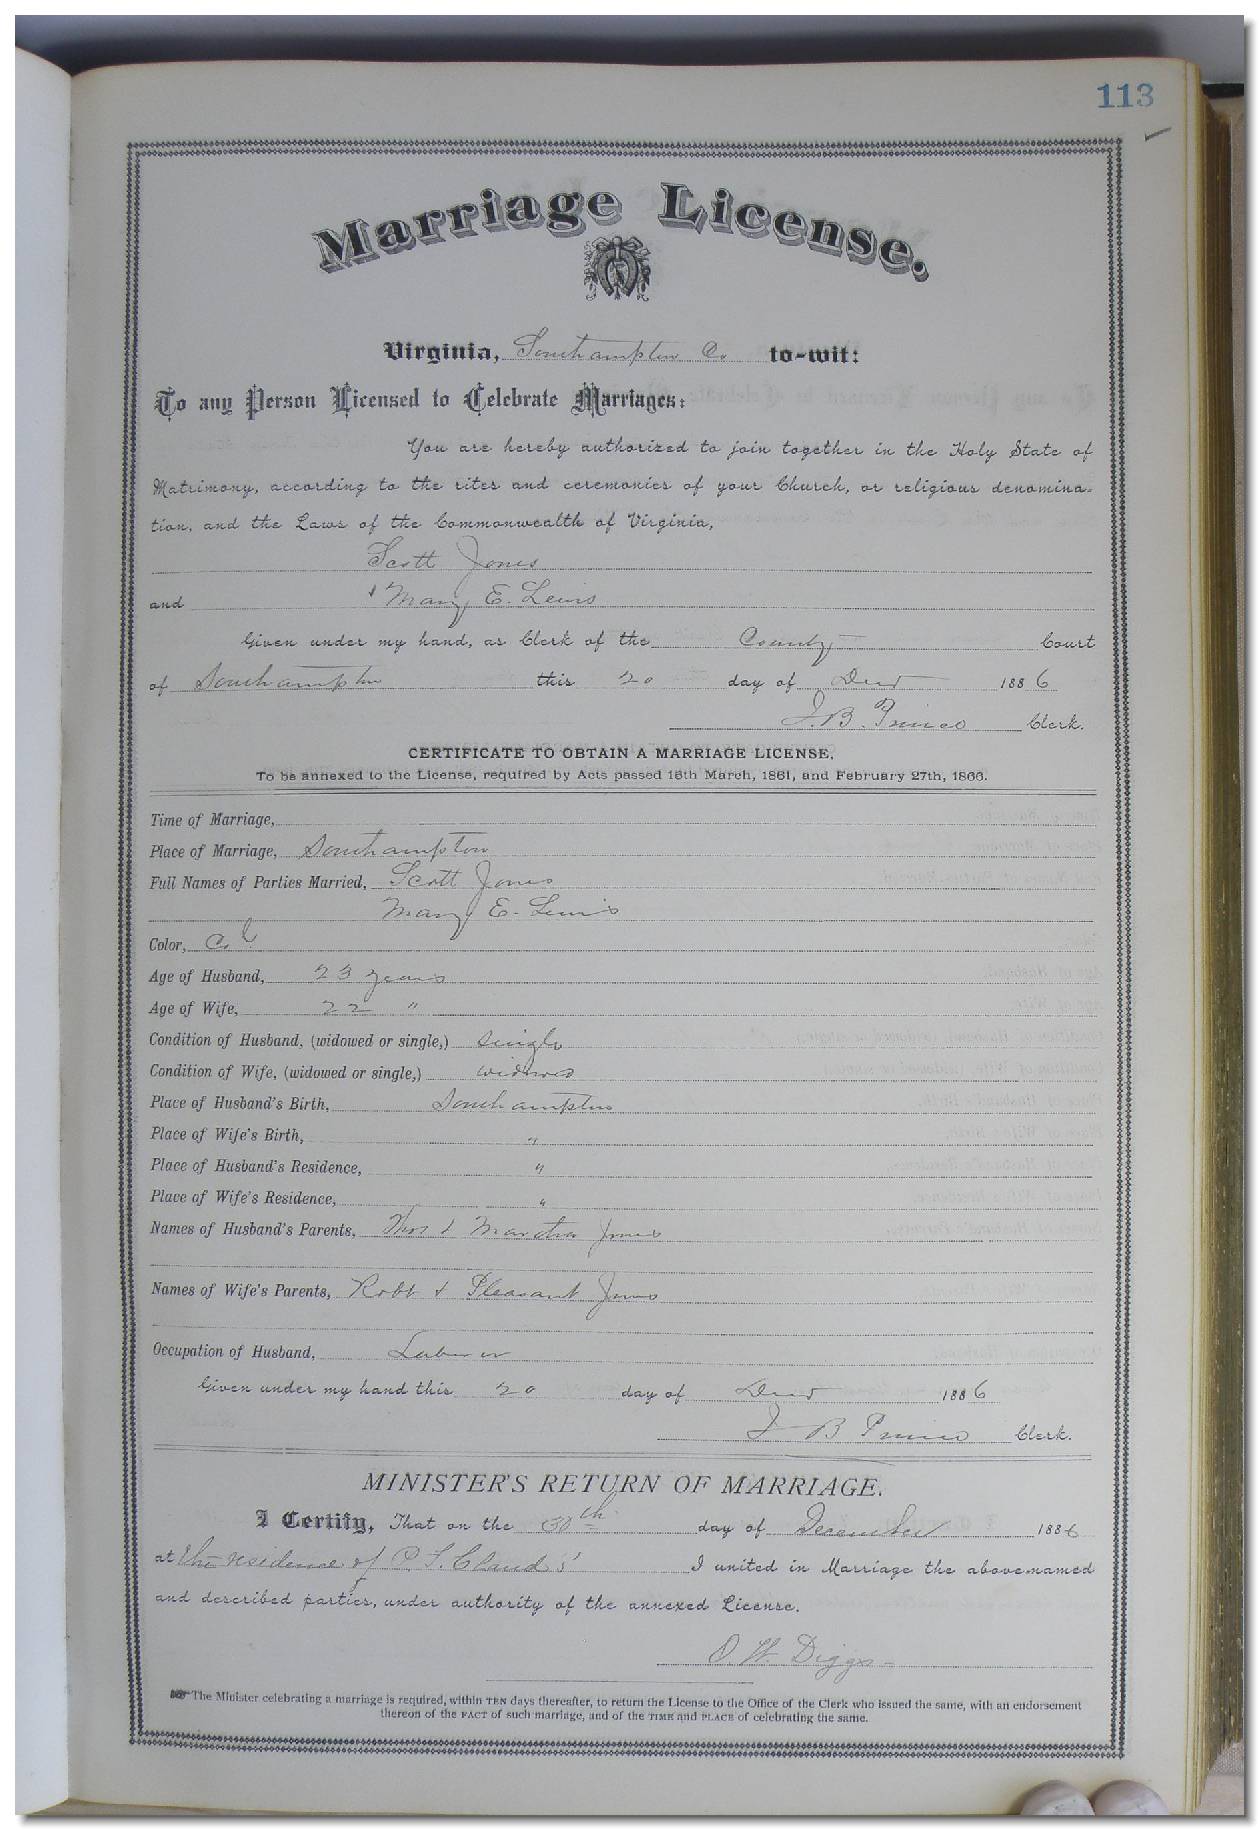 113
Marriage License.
Virginia, Southampton Co. to-wit:
To any Person Licensed to Celebrate Marriages:
You are hereby authorized to join together in the Holy State of
Matrimony, according to the rites and ceremonies of your Church, or religious denomina-
tion, and the Laws of the Commonwealth of Virginia,
Scott Jones
and Mary E. Lewis
Given under my hand, as Clerk of the County Court
of Southampton this 20 day of 1886
J. B. Prince Clerk.
CERTIFICATE TO OBTAIN A MARRIAGE LICENSE,
To be annexed to the License, required by Acts passed 16th March, 1861, and February 27th, 1866.
Time of Marriage,
Place of Marriage, Southampton
Full Names of Parties Married, Scott Jones
Mary E. Lewis
Color, Col
Age of Husband, 23 years
Age of Wife, 22 "
Condition of Husband, (widowed or single,) single
Condition of Wife, (widowed or single,) widowed
Place of Husband's Birth, Southampton
Place of Wife's Birth, "
Place of Husband's Residence, "
Place of Wife's Residence, "
Names of Husband's Parents, & Martha Jones
Names of Wife's Parents, Robt & Pleasant Jones
Occupation of Husband, Laborer
Given under my hand this 20 day of 1886
J B Prince Clerk.
MINISTER'S RETURN OF MARRIAGE.
I Certify, That on the 30th day of December 1886
at the residence of P. S. Claud's' I united in Marriage the above-named
and described parties, under authority of the annexed License.
O. W. Diggs
The Minister celebrating a marriage is required, within TEN days thereafter, to return the License to the Office of the Clerk who issued the same, with an endorsement
thereon of the FACT of such marriage, and of the TIME and PLACE of celebrating the same.